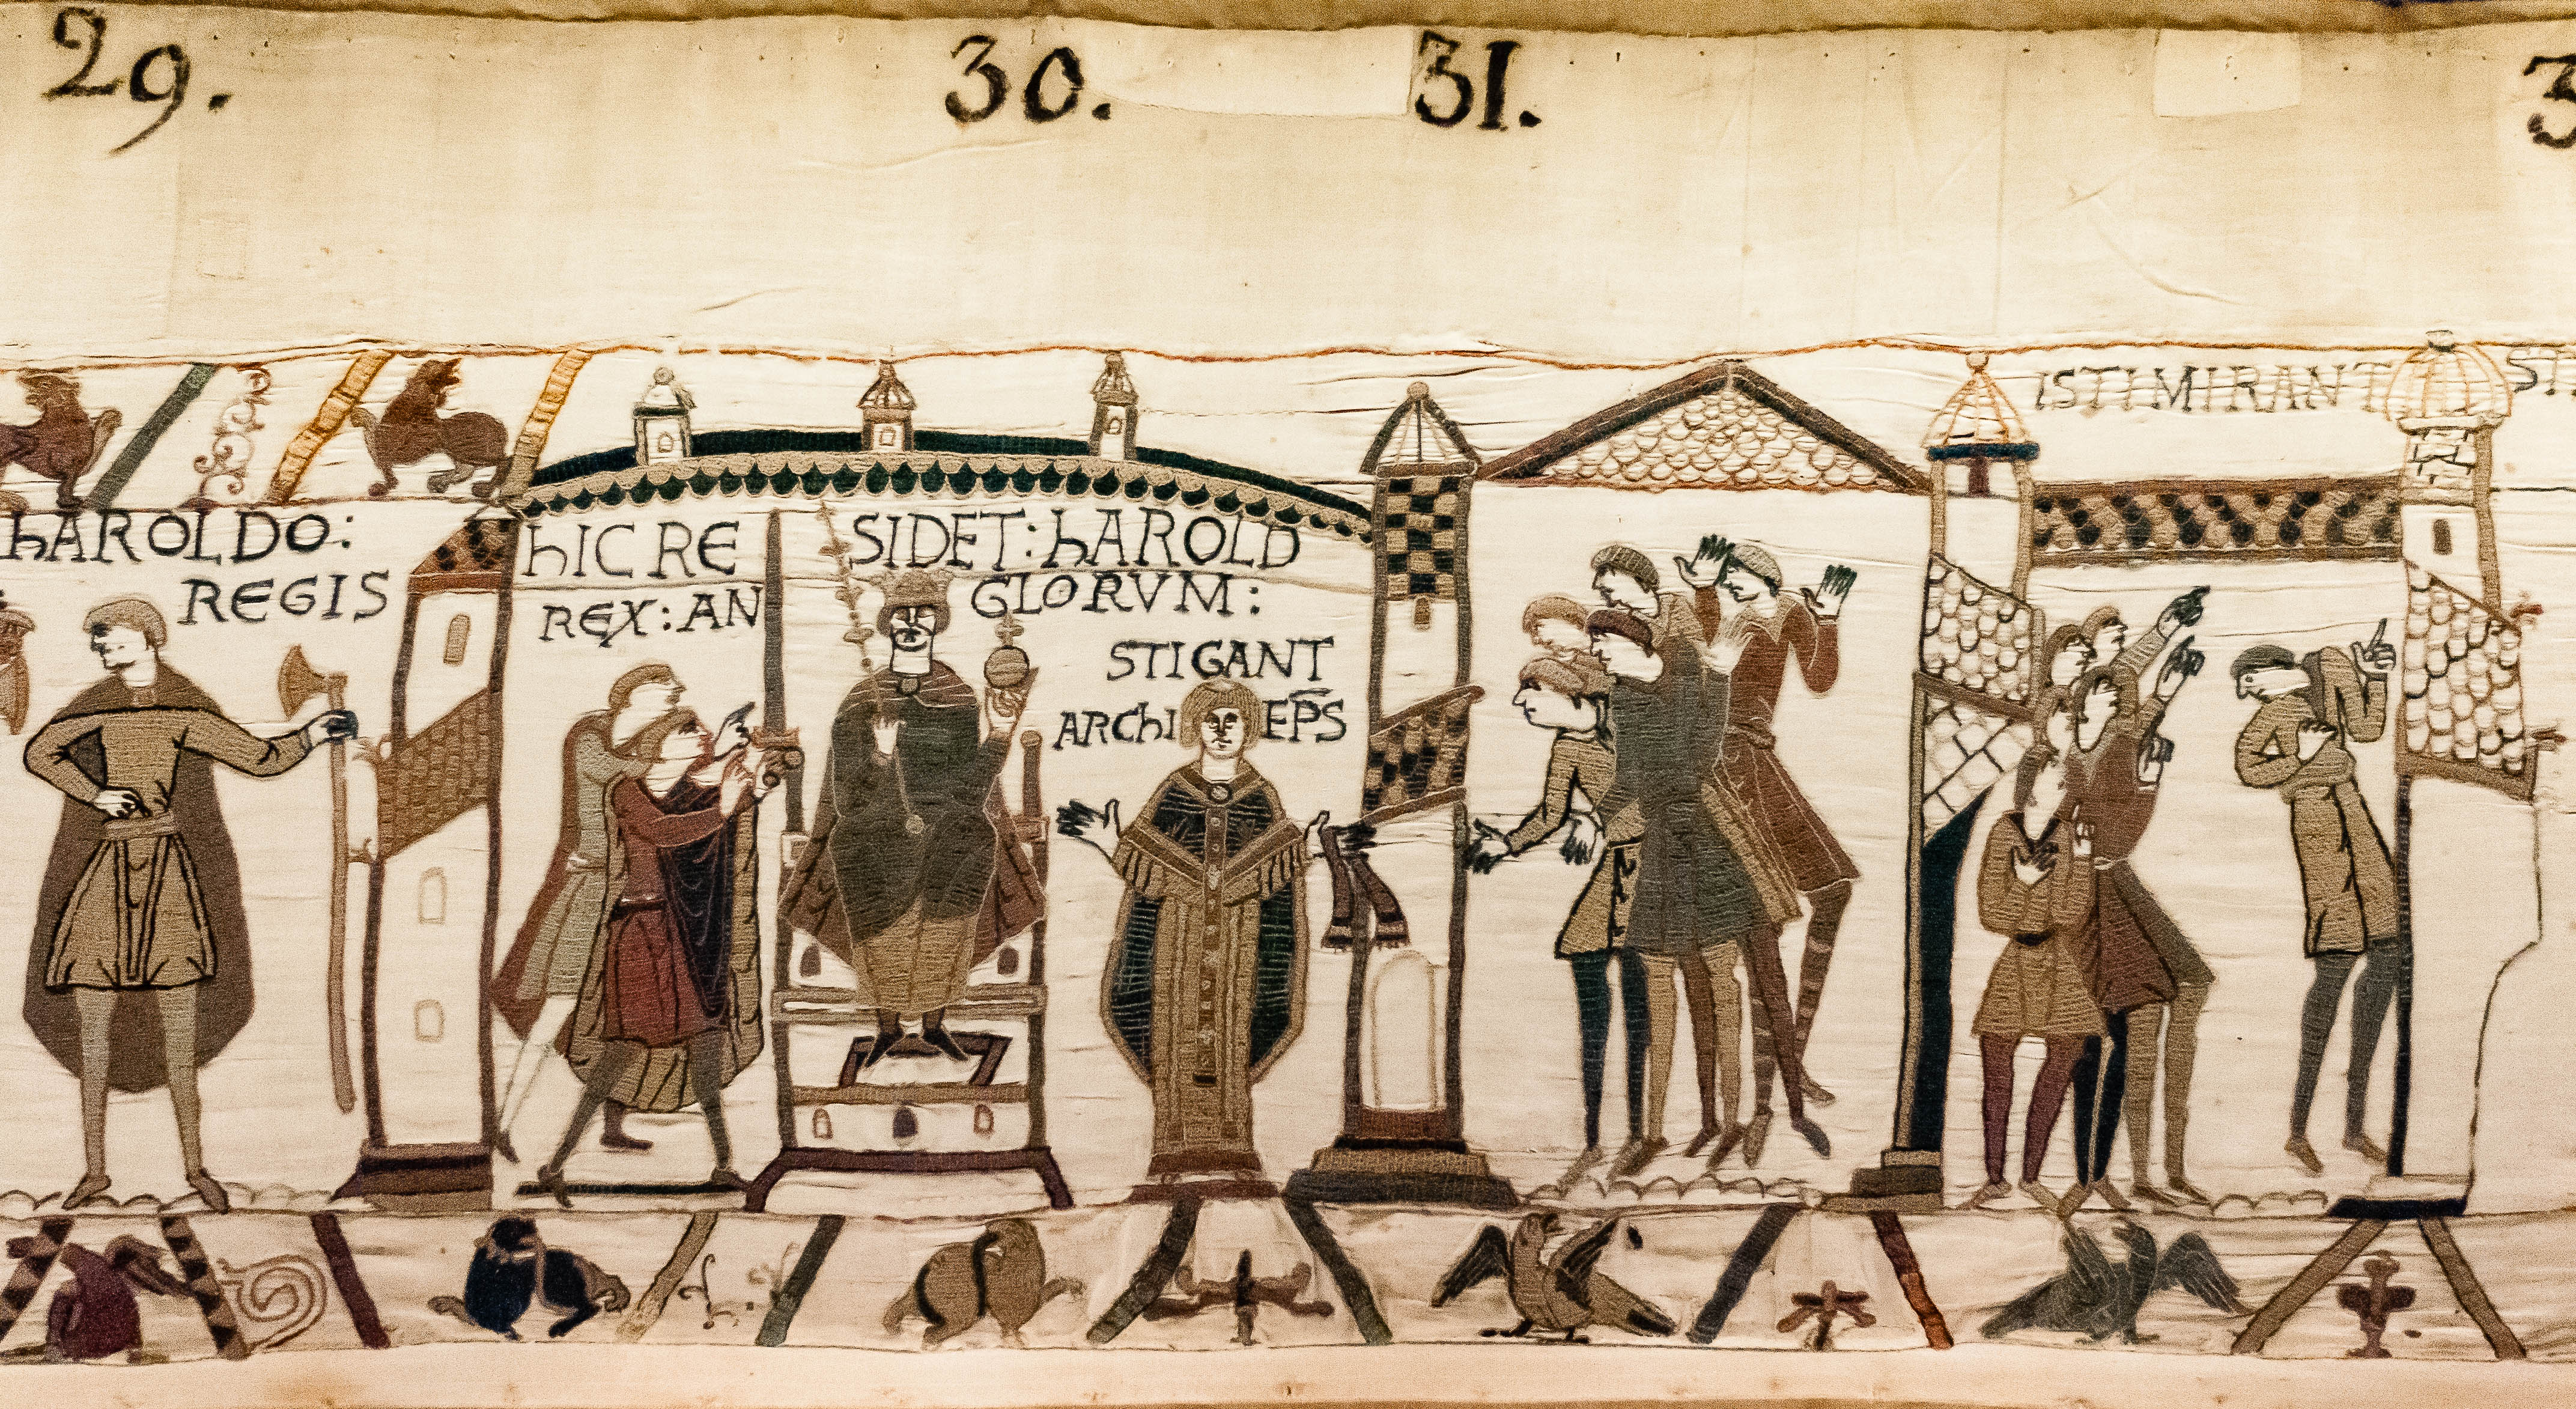 29.
30.
31.
3
hAROLDO:
REGIS
hIC RE
SIDET: hAROLD
REX: AN
GLORVM:
STIGANT
ARChI EP̄S
ISTI MIRANT
ST